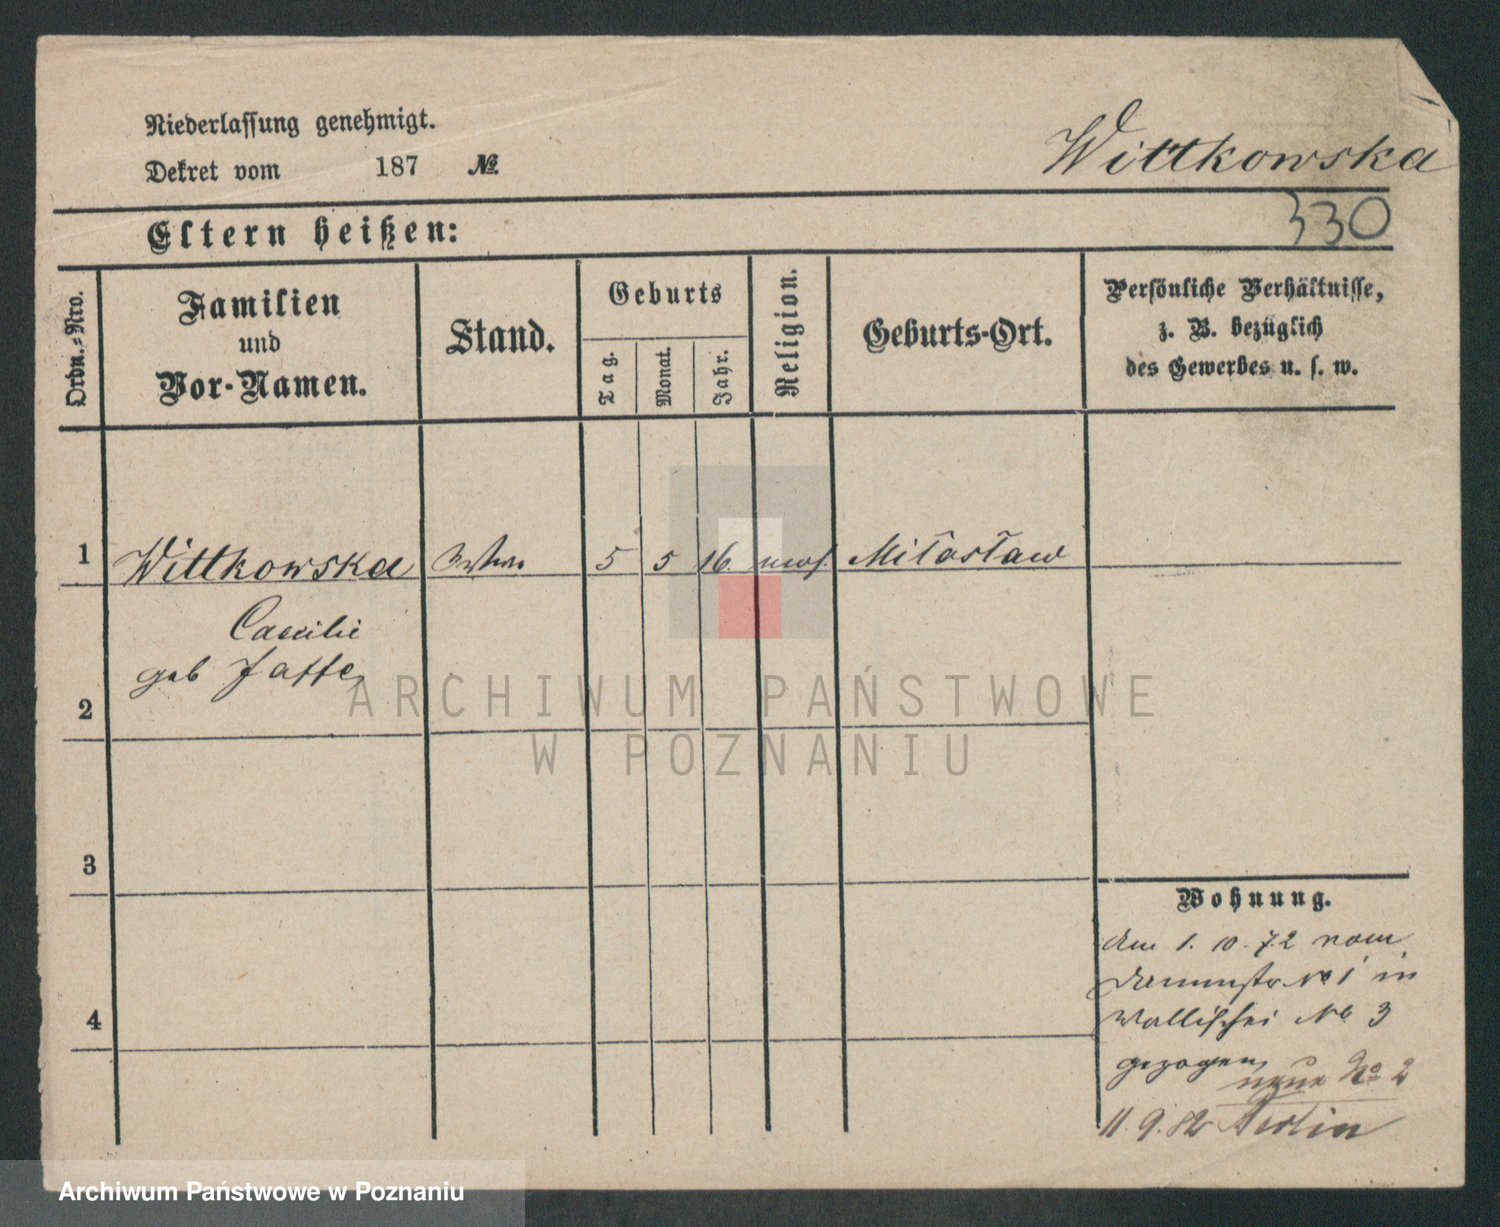 Niederlassung genehmigt.
Wittkowska
Dekret vom 187 №
330
Eltern heißen:
Ordn.-Nro.
Familien
und
Vor-Namen.
Stand.
Geburts
Tag.
Monat.
Jahr.
Religion.
Geburts-Ort.
Persönliche Verhältnisse,
z. B. bezüglich
des Gewerbes u. s. w.
1 Wittkowska 5 5 16. mos. Miłosław
Caecilie
geb Jaffe
2
3
4
ARCHIWUM PAŃSTWOWE
W POZNANIU
Wohnung.
Am 1. 10. 72 vom
Dammstr. No 1 in
Wallischei No 3
gezogen,
neue No 2
11. 9. 82 Berlin
Archiwum Państwowe w Poznaniu